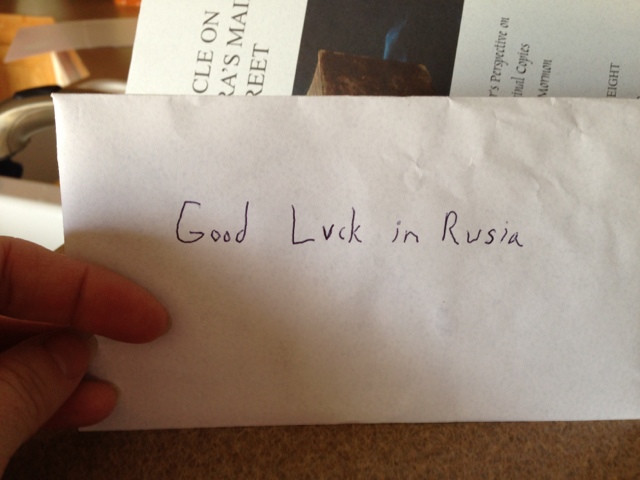 Good Luck in Rusia
CLE ON
RA'S MAI
REET
r's Perspective on
inal Copies
Mormon
EIGHT